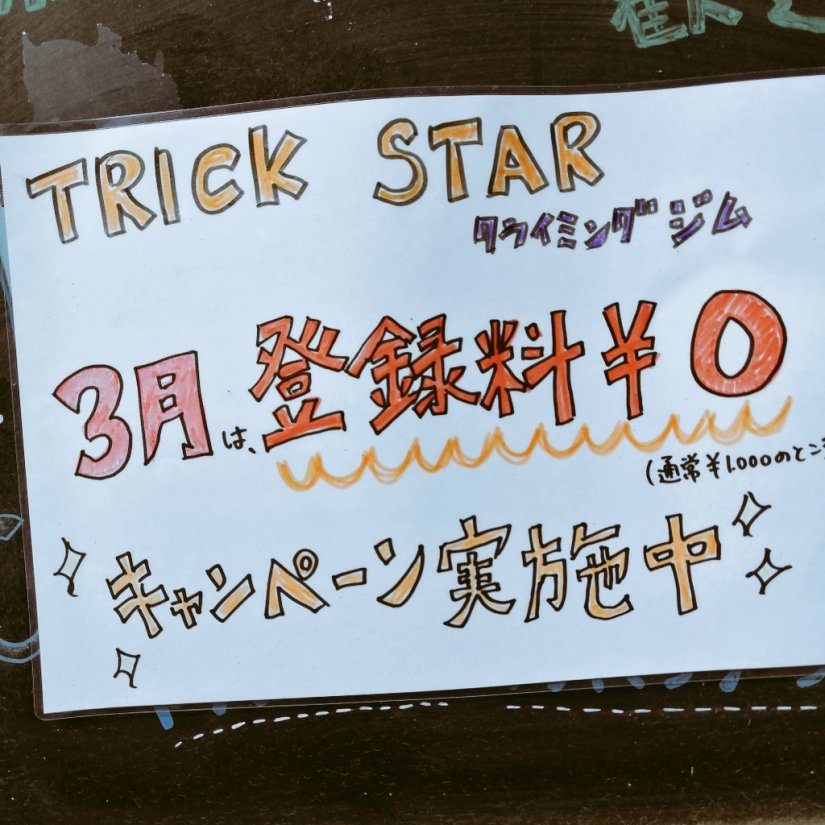 TRICK STAR
クライミングジム
3月は、登録料¥0
(通常¥1.000のところ
キャンペーン実施中